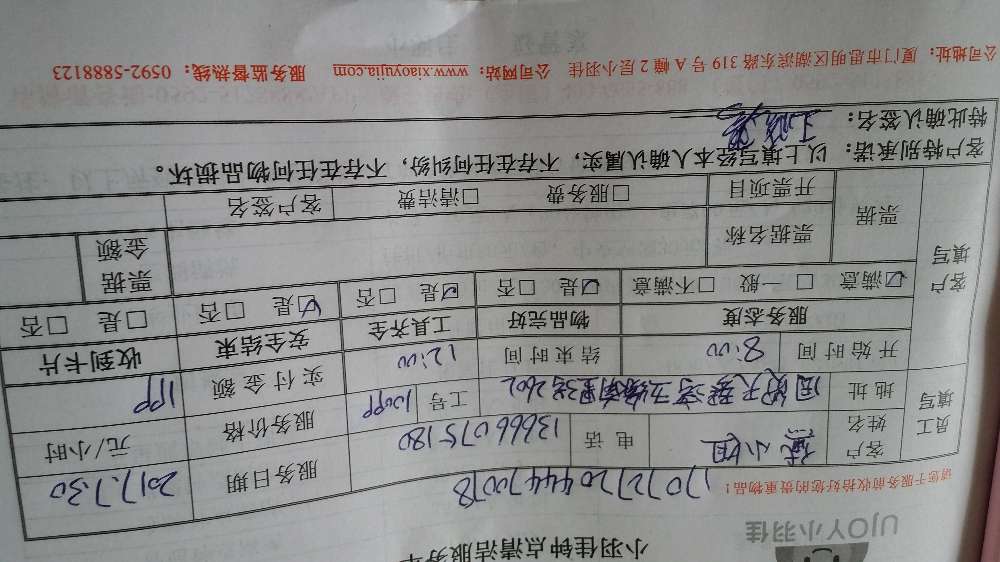 小羽佳钟点清洁服务单
UJOY小羽佳
请您于服务前收拾好您的贵重物品！
17072720444470078
员工填写
客户姓名 小姐 电话 13666075180 服务日期 2017.7.30
地址 工号 服务价格 元/小时
开始时间 8:00 结束时间 12:00 实付金额
客户填写
服务态度 物品完好 工具齐全 安全结束 收到卡片
☑满意 □一般 □不满意 ☑是 □否 ☑是 □否 ☑是 □否 □是 □否
票据 票据名称 票据金额
开票项目 □服务费 □清洁费 客户签名
客户特别承诺：以上填写经本人确认属实，不存在任何纠纷，不存在任何物品损坏。
特此确认签名：
公司地址：厦门市思明区湖滨东路319号A幢2层小羽佳 公司网站：www.xiaoyujia.com 服务监督热线：0592-5888123